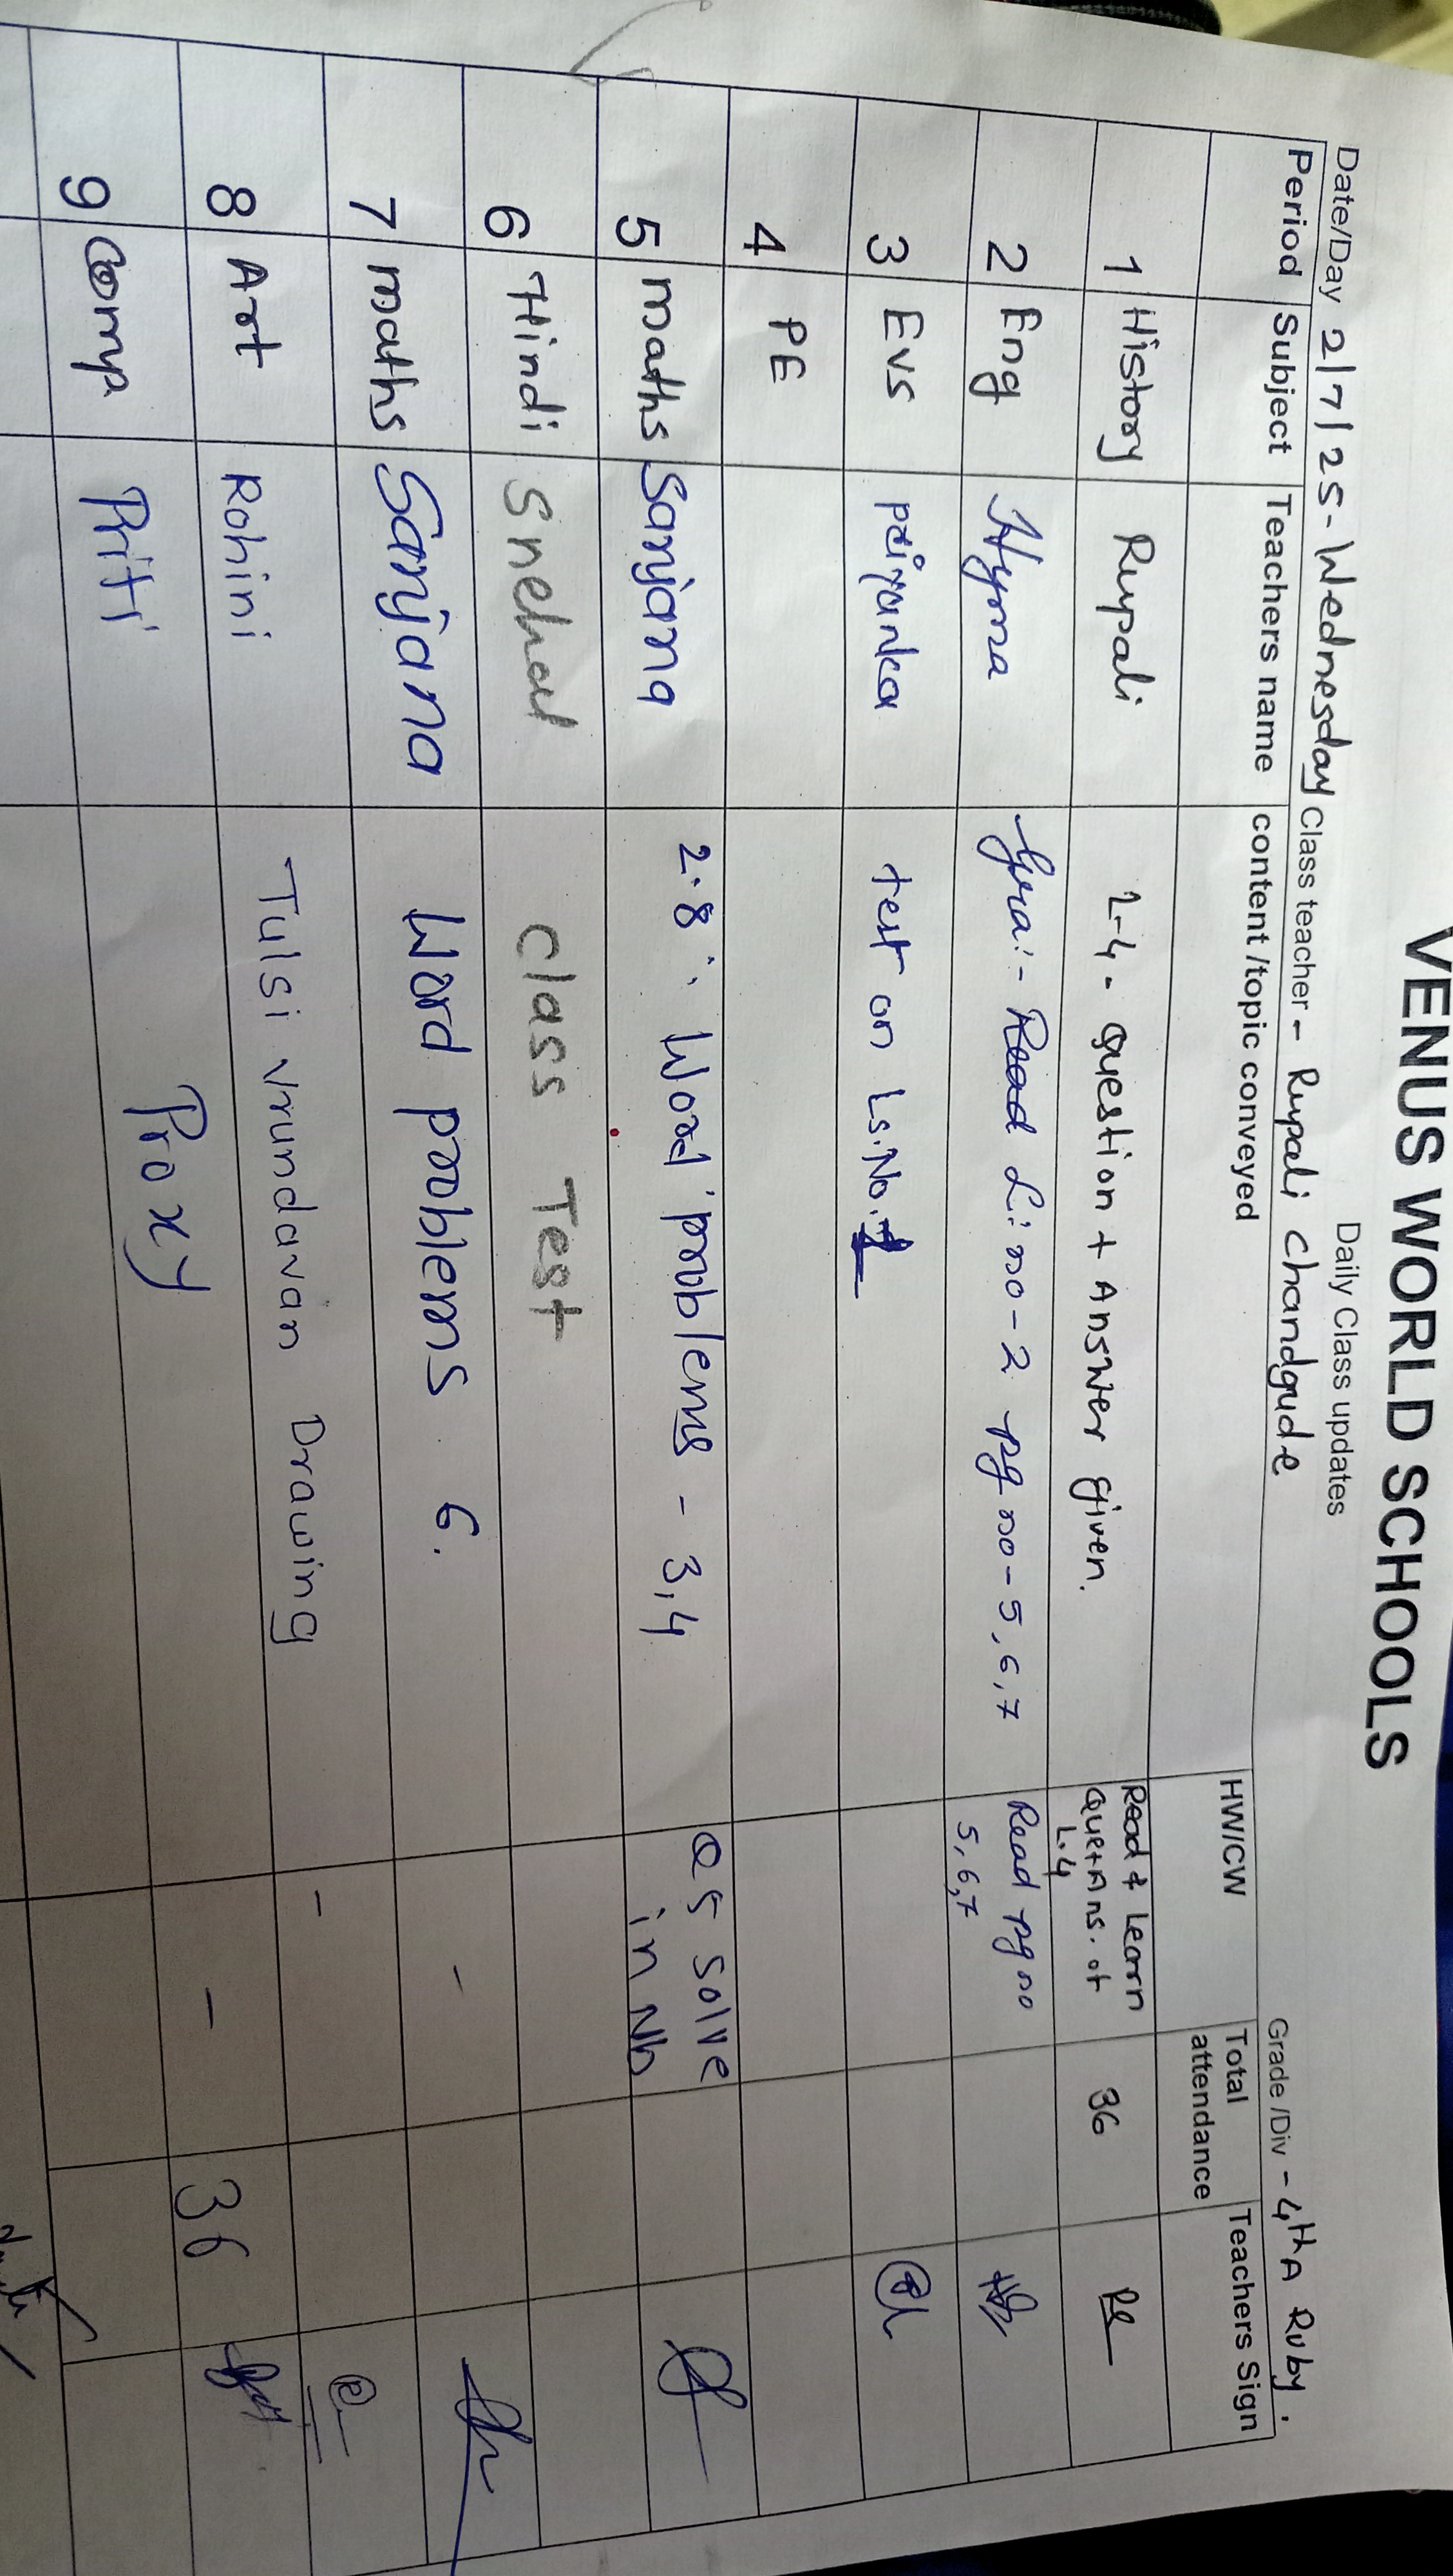 VENUS WORLD SCHOOLS
Daily Class updates
Date/Day 2/7/25-Wednesday Class teacher - Rupali Chandgude Grade /Div - 4th A Ruby.
Period Subject Teachers name content /topic conveyed HW/CW Total attendance Teachers Sign
1 History Rupali L-4- question + Answer given. Read & Learn
Que+Ans. of
L.4 36
2 Eng Hyma Gra:- Read L:no-2 pg no-5,6,7 Read pg no
5,6,7
3 Evs priyanka test on Ls.No.1
4 PE
5 maths Sanjana 2.8: Word problems - 3,4 Q5 solve
in Nb
6 Hindi Snehal Class Test
7 maths Sanjana Word problems 6. -
8 Art Rohini Tulsi Vrundavan Drawing -
9 Comp Priti Proxy - 36